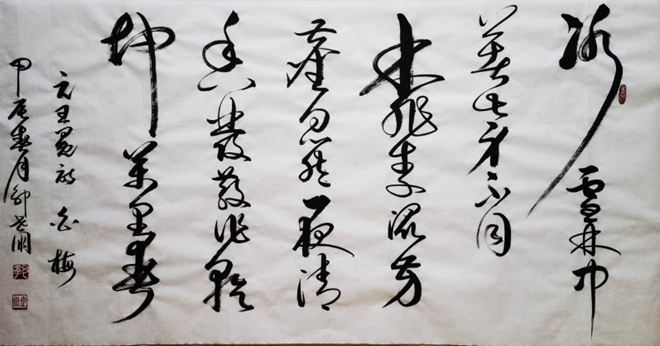 冰雪林中
著此身不同
桃李混芳
塵忽然一夜清
香發散作乾
坤萬里春
元王冕詩 白梅
甲辰春月